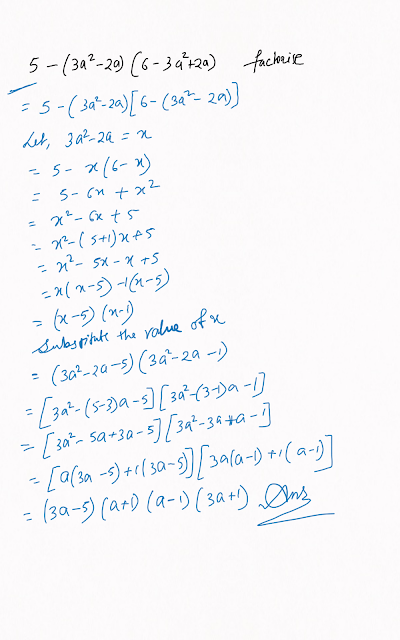 5 - (3a²-2a) (6-3a²+2a) factorise
= 5 - (3a²-2a) [6 - (3a² - 2a)]
Let, 3a²-2a = x
= 5 - x(6-x)
= 5 - 6x + x²
= x² - 6x + 5
= x² - (5+1)x + 5
= x² - 5x - x + 5
= x(x-5) -1(x-5)
= (x-5) (x-1)
Substitute the value of x
= (3a²-2a-5) (3a²-2a-1)
= [3a²-(5-3)a-5] [3a²-(3-1)a-1]
= [3a²-5a+3a-5] [3a²-3a+a-1]
= [a(3a-5)+1(3a-5)] [3a(a-1)+1(a-1)]
= (3a-5) (a+1) (a-1) (3a+1) Ans